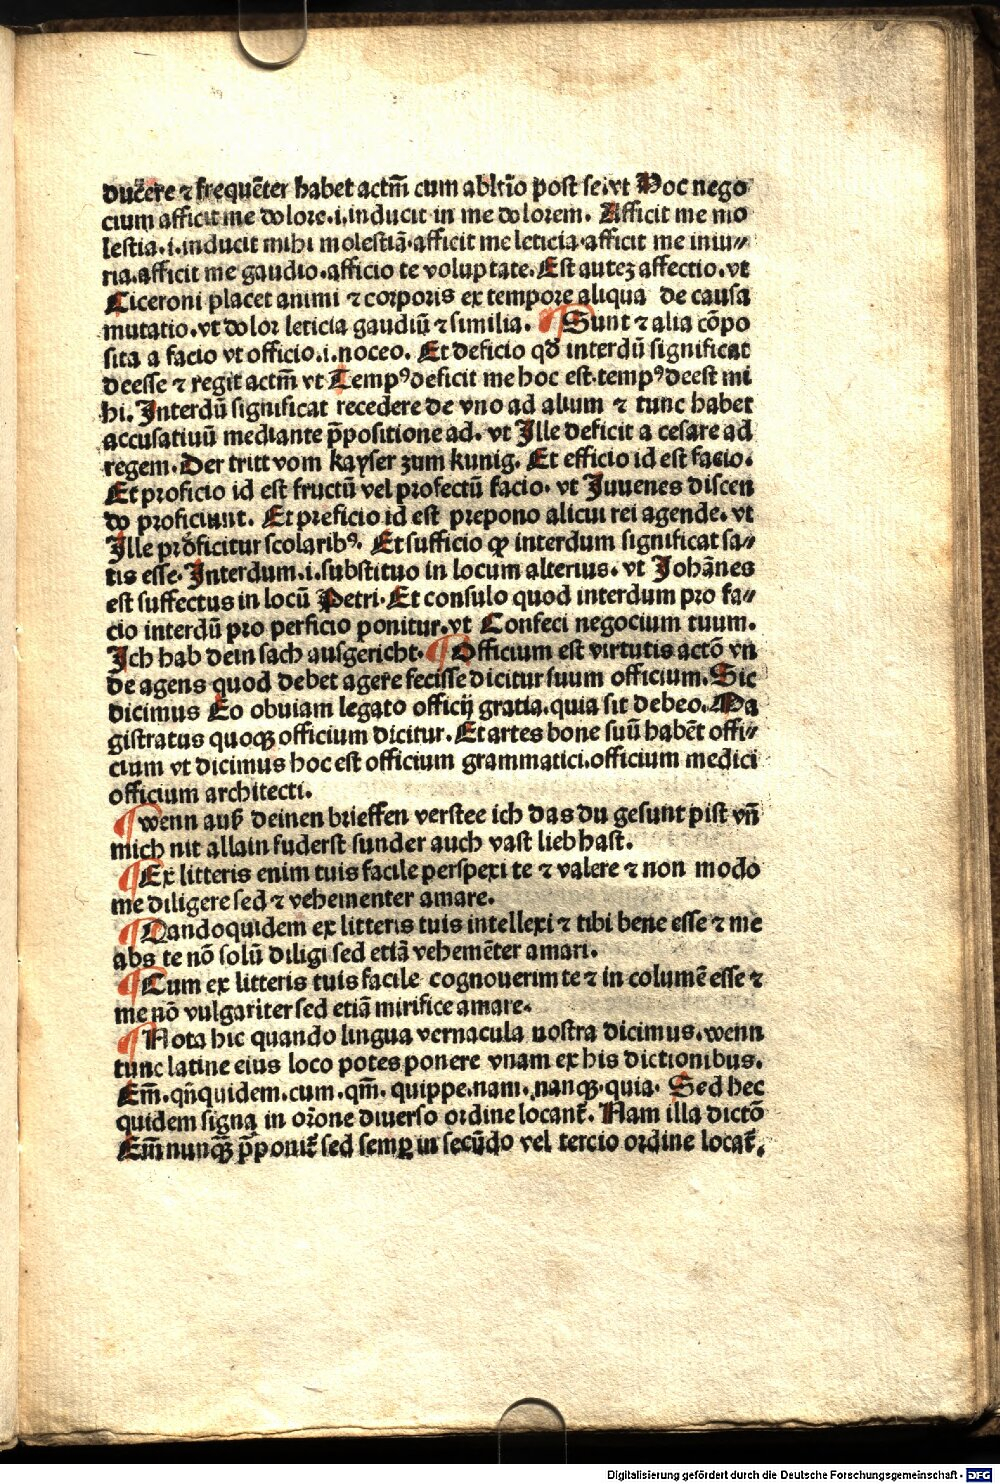 ducere ⁊ frequẽter habet actm̃ cum abltĩo post se.vt Hoc nego
cium afficit me dolore.i.inducit in me dolorem. Afficit me mo
lestia.i.inducit mihi molestiã.afficit me leticia.afficit me iniu⸗
ria.afficit me gaudio.afficio te voluptate. Est auteꝫ affectio.vt
Ciceroni placet animi ⁊ corporis ex tempore aliqua de causa
mutatio.vt dolor leticia gaudiũ ⁊ similia. ¶ Sunt ⁊ alia cõpo
sita a facio vt officio.i.noceo. Et deficio qd̃ interdũ significat
deesse ⁊ regit actm̃ vt Tempꝰ deficit me hoc est.tempꝰ deest mi
hi. Interdũ significat recedere de vno ad alium ⁊ tunc habet
accusatiuũ mediante p̃positione ad. vt Ille deficit a cesare ad
regem. Der tritt vom kayser zum kunig. Et efficio id est facio.
Et proficio id est fructũ vel profectũ facio. vt Iuuenes discen
do proficiunt. Et preficio id est prepono alicui rei agende. vt
Ille pro᷑ficitur scolaribꝰ. Et sufficio qꝫ interdum significat sa⸗
tis esse. Interdum.i.substituo in locum alterius. vt Johãnes
est suffectus in locũ Petri. Et consulo quod interdum pro fa⸗
cio interdũ pro perficio ponitur.vt Confeci negocium tuum.
Ich hab dein sach ausgericht. ¶ Officium est virtutis actõ vn
de agens quod debet agere fecisse dicitur suum officium. Sic
dicimus Eo obuiam legato officij gratia.quia sit debeo. Ma
gistratus quoqꝫ officium dicitur. Et artes bone suũ habẽt offi⸗
cium vt dicimus hoc est officium grammatici.officium medici
officium architecti.
¶ wenn auß deinen brieffen verstee ich das du gesunt pist vñ
mich nit allain fuderst sunder auch vast lieb hast.
¶ Ex litteris enim tuis facile perspexi te ⁊ valere ⁊ non modo
me diligere sed ⁊ vehementer amare.
¶ Qandoquidem ex litteris tuis intellexi ⁊ tibi bene esse ⁊ me
abs te nõ solũ diligi sed etiã vehemẽter amari.
¶ Cum ex litteris tuis facile cognouerim te ⁊ in columẽ esse ⁊
me nõ vulgariter sed etiã mirifice amare.
¶ Nota hic quando lingua vernacula nostra dicimus.wenn
tunc latine eius loco potes ponere vnam ex his dictionibus.
Em̃.qñquidem.cum.qm̃.quippe.nam.nanqꝫ.quia. Sed hec
quidem signa in orõne diuerso ordine locant᷑. Nam illa dictõ
Em̃ nunqꝫ̃ p̃ponit᷑ sed semꝑ in secũdo vel tercio ordine locat᷑.
Digitalisierung gefördert durch die Deutsche Forschungsgemeinschaft - DFG